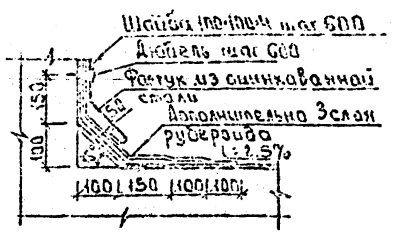 Шайба 100×100×4 шаг 600
Дюбель шаг 600
Фартук из оцинкованной
стали
Дополнительно 3 слоя
рубероида
i=2.5%
150
100
50
100 150 100 100